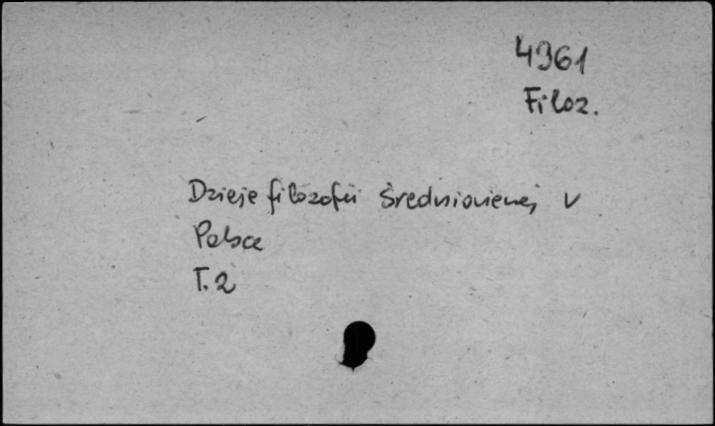 4961
Filoz.
Dzieje filozofii średniowiecznej w
Polsce
T. 2